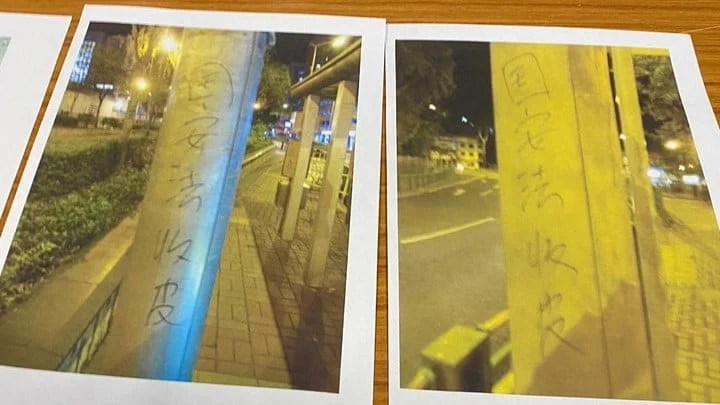 国安法收皮
国安法收皮